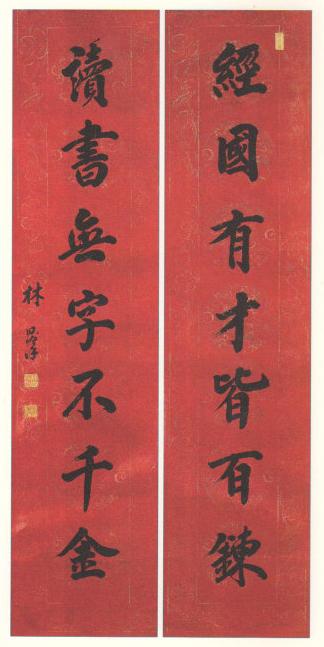 經國有才皆百鍊
讀書無字不千金
林則徐